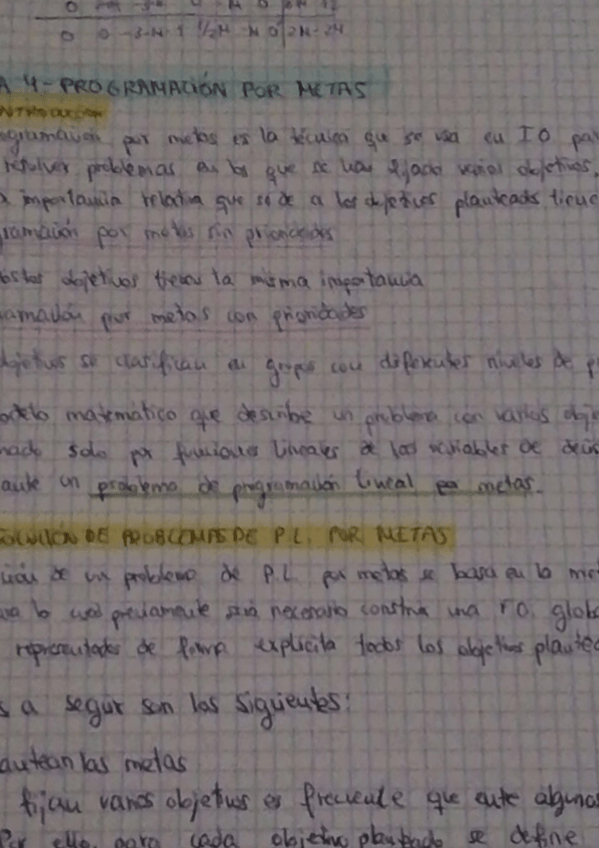 0 0 -3-M -1 1/2M -M 0 2M-24
A 4- PROGRAMACIÓN POR METAS
INTRODUCCIÓN
ogramación por metas es la técnica que se usa en IO pa
resolver problemas en los que se han fijado varios objetivos,
a importancia relativa que se de a los objetivos planteados tiene
ramación por metas sin prioridades
objetivos tienen la misma importancia
amación por metas con prioridades
objetivos se clasifican en grupos con diferentes niveles de p
odelo matemático que describe un problema con varios obje
mado solo por funciones lineales de las variables de decis
ante un problema de programación lineal por metas.
SOLUCIÓN DE PROBLEMAS DE P.L. POR METAS
ución de un problema de P.L. por metas se basa en la me
ara lo cual previamente será necesario construir una F.O. globa
representados de forma explícita todos los objetivos plantea
s a seguir son los siguientes:
antean las metas
fijan varios objetivos es frecuente que ente algunos
Por ello, para cada objetivo planteado se define